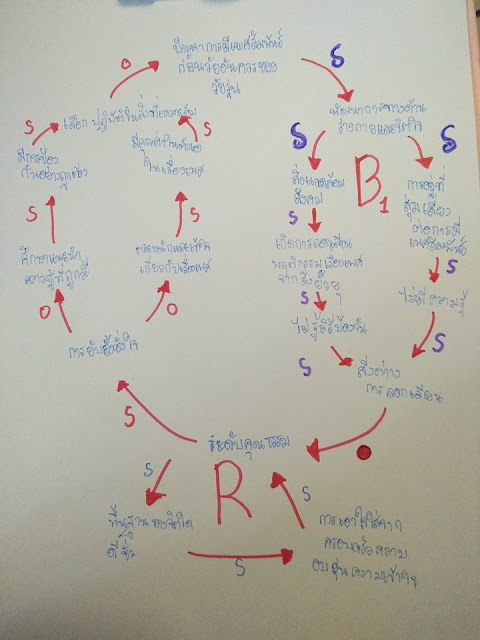 ปัญหาการมีเพศสัมพันธ์
ก่อนวัยอันควรของ
วัยรุ่น
O
S
S
เลือกปฏิบัติในสิ่งที่เหมาะสม
S
พัฒนาการทางด้าน
ร่างกายและจิตใจ
มีการป้อง
กันอย่างถูกต้อง
ในเรื่องเพศ
S
S
สิ่งแวดล้อม
สังคม
B1
การอยู่ที่
สุ่มเสี่ยง
ต่อการมี
เพศสัมพันธ์
S
S
S
เกิดการลอกเลียน
พฤติกรรมเรื่องเพศ
จากสื่อ
S
ความรู้ที่ถูกต้อง
เกี่ยวกับเรื่องเพศ
ไม่มีความรู้
O
O
S
ไม่รู้วิธีป้องกัน
S
S
การยับยั้งชั่งใจ
สิ่งต่าง
การลอกเลียน
S
ระดับคุณธรรม
S
R
S
พื้นฐานทางจิตใจ
การเอาใจใส่จาก
ครอบครัวความ
อบอุ่นความเข้าใจ
S